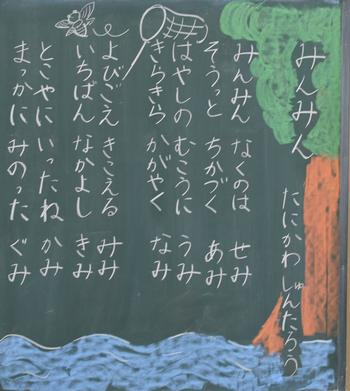 みんみん
たにかわしゅんたろう
みんみん なくのは せみ
そうっと ちかづく あみ
はやしの むこうに うみ
きらきら かがやく なみ
よびごえ きこえる みみ
いちばん なかよし きみ
とこやに いったね かみ
まっかに みのった ぐみ